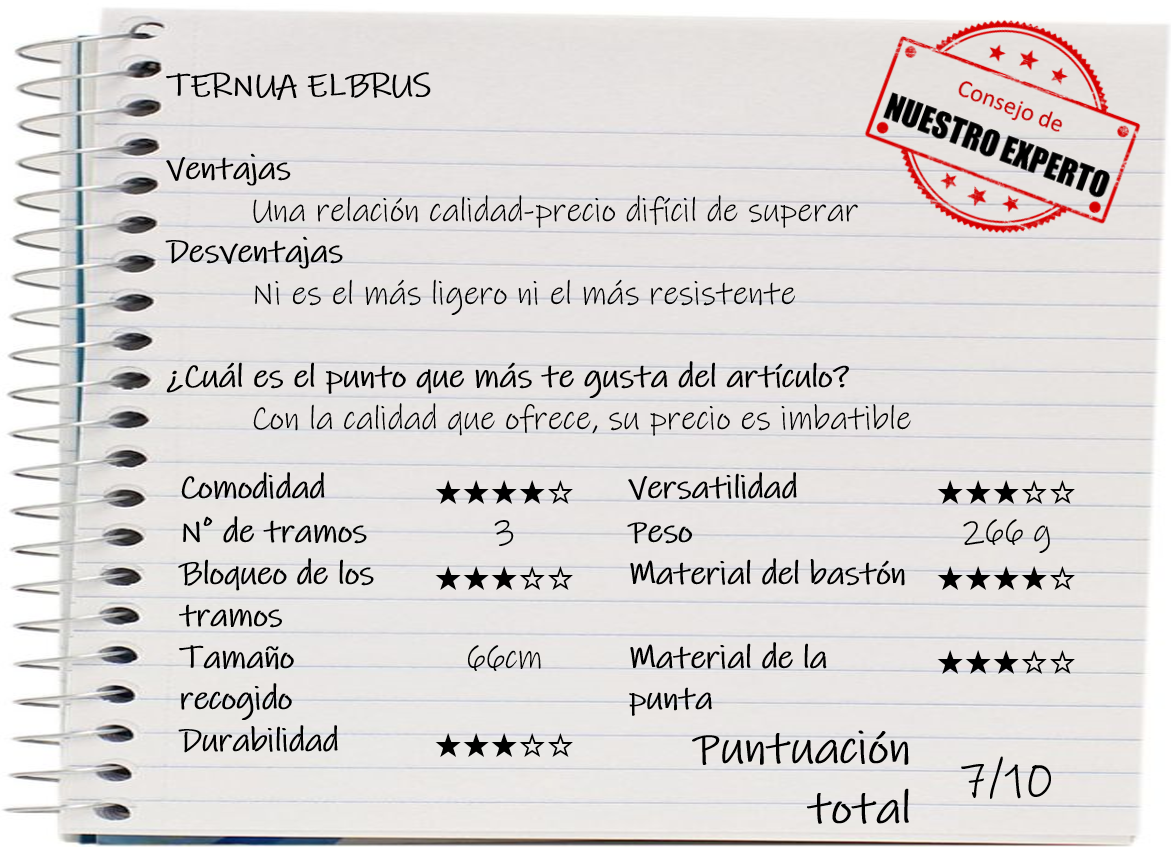 TERNUA ELBRUS
Consejo de
NUESTRO EXPERTO
Ventajas
Una relación calidad-precio difícil de superar
Desventajas
Ni es el más ligero ni el más resistente
¿Cuál es el punto que más te gusta del artículo?
Con la calidad que ofrece, su precio es imbatible
Comodidad ★★★★☆ Versatilidad ★★★☆☆
Nº de tramos 3 Peso 266 g
Bloqueo de los ★★★☆☆ Material del bastón ★★★★☆
tramos
Tamaño 66cm Material de la ★★★☆☆
recogido punta
Durabilidad ★★★☆☆ Puntuación
total 7/10